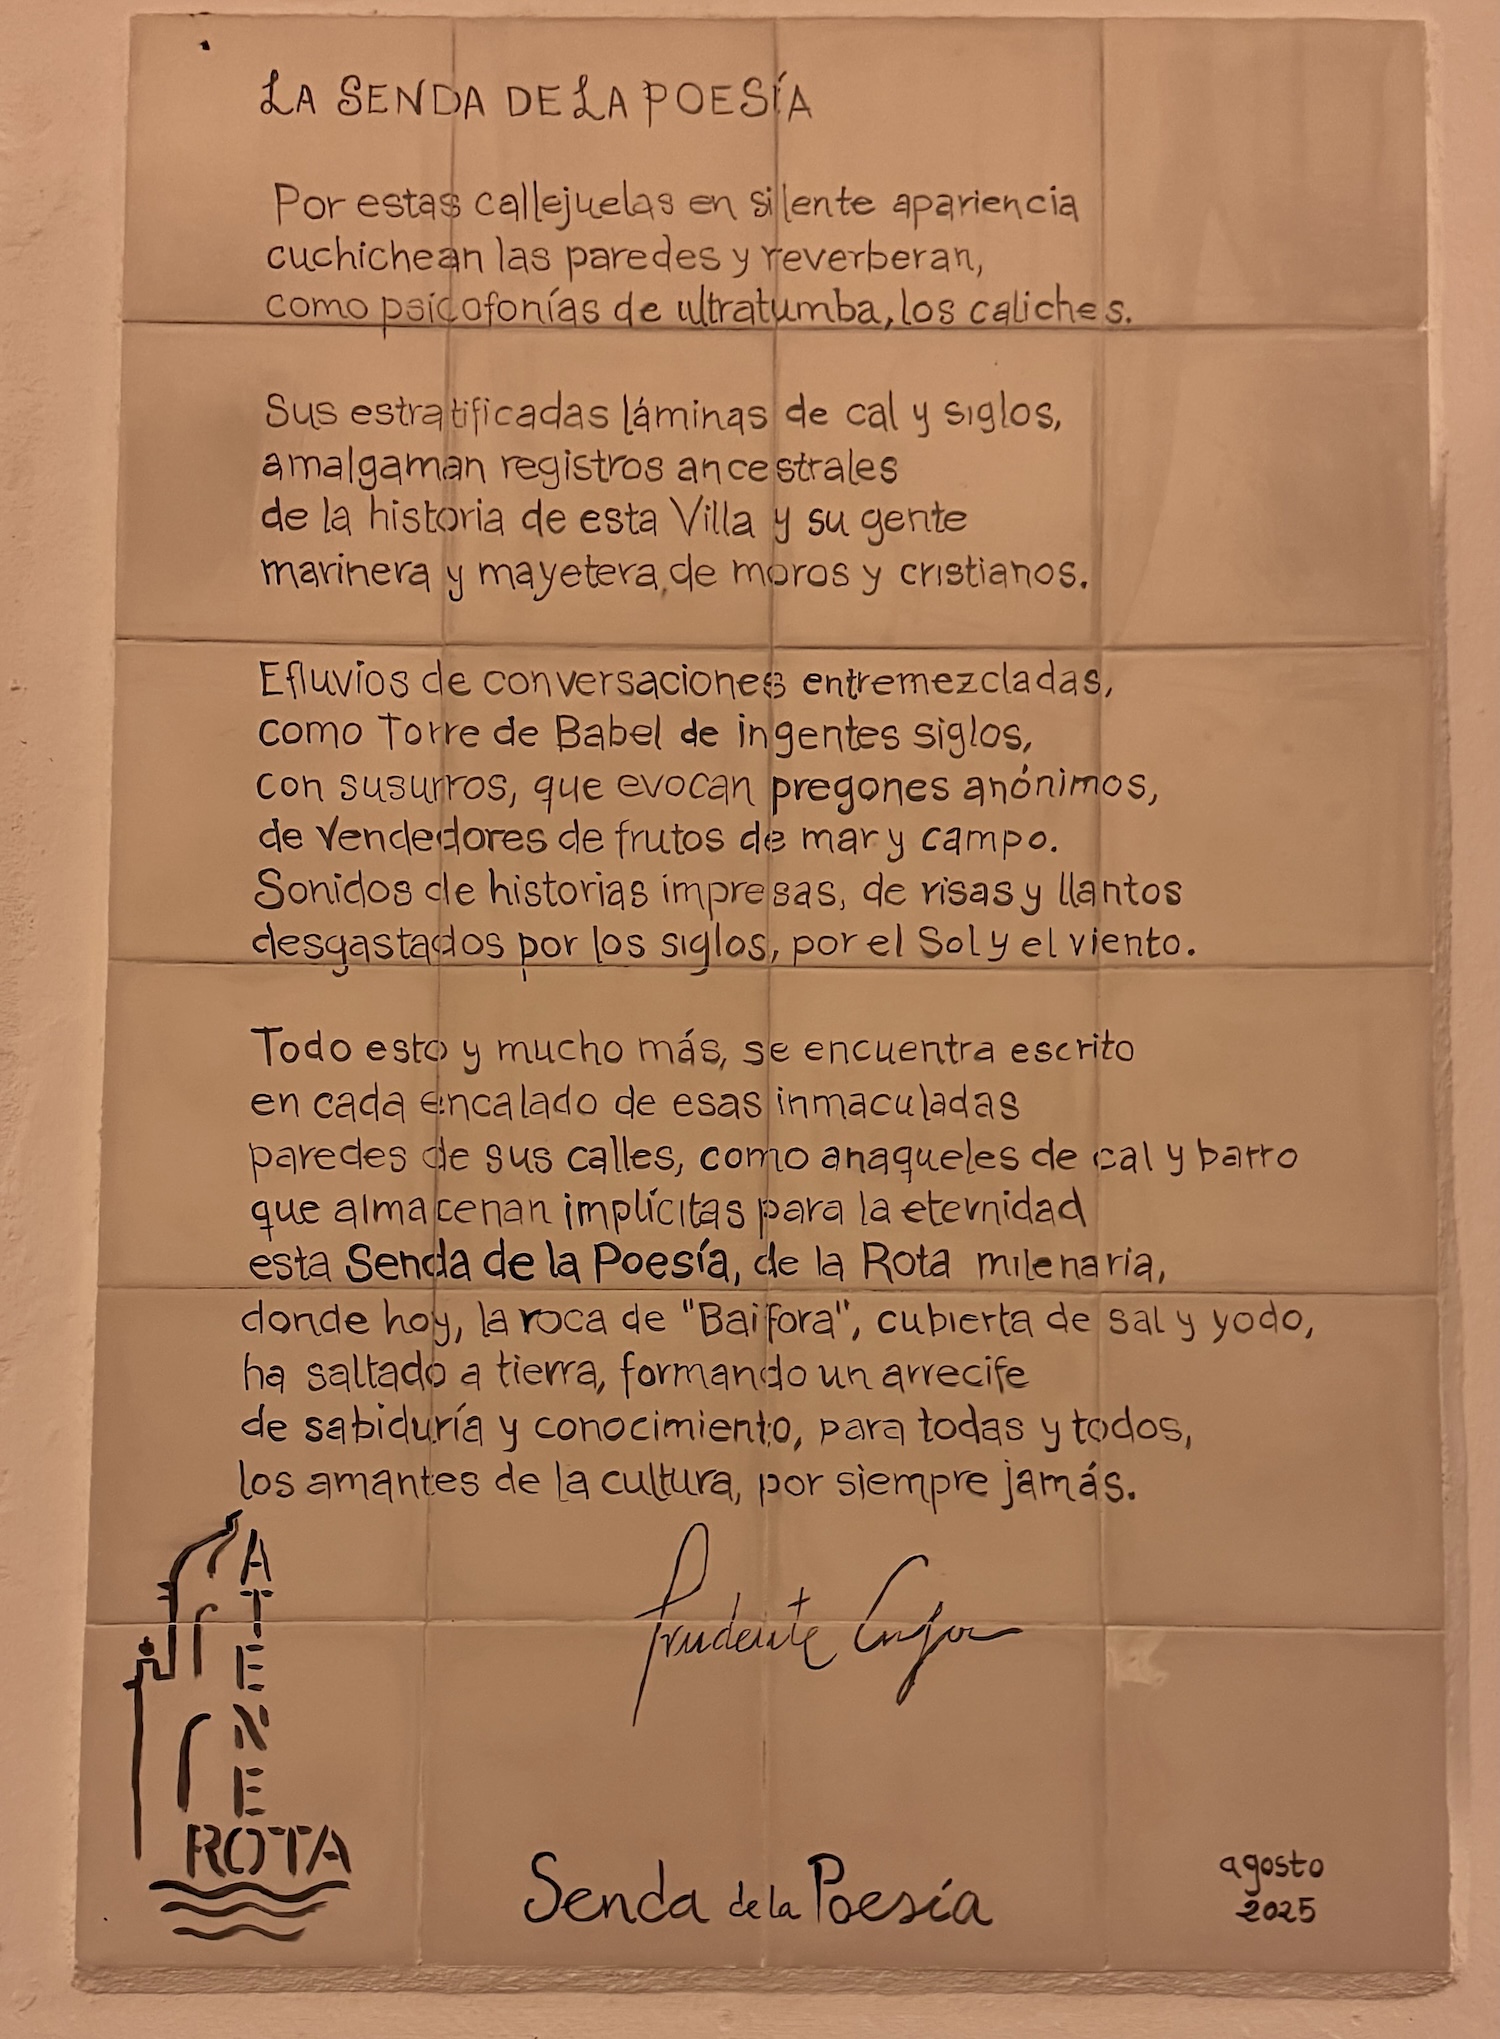 LA SENDA DE LA POESÍA
Por estas callejuelas en silente apariencia
cuchichean las paredes y reverberan,
como psicofonías de ultratumba, los caliches.
Sus estratificadas láminas de cal y siglos,
amalgaman registros ancestrales
de la historia de esta Villa y su gente
marinera y mayetera, de moros y cristianos.
Efluvios de conversaciones entremezcladas,
como Torre de Babel de ingentes siglos,
con susurros, que evocan pregones anónimos,
de vendedores de frutos de mar y campo.
Sonidos de historias impresas, de risas y llantos
desgastados por los siglos, por el Sol y el viento.
Todo esto y mucho más, se encuentra escrito
en cada encalado de esas inmaculadas
paredes de sus calles, como anaqueles de cal y barro
que almacenan implícitas para la eternidad
esta Senda de la Poesía, de la Rota milenaria,
donde hoy, la roca de "Baifora", cubierta de sal y yodo,
ha saltado a tierra, formando un arrecife
de sabiduría y conocimiento, para todas y todos,
los amantes de la cultura, por siempre jamás.
Prudente
ATENEO
ROTA
Senda de la Poesía
agosto
2025